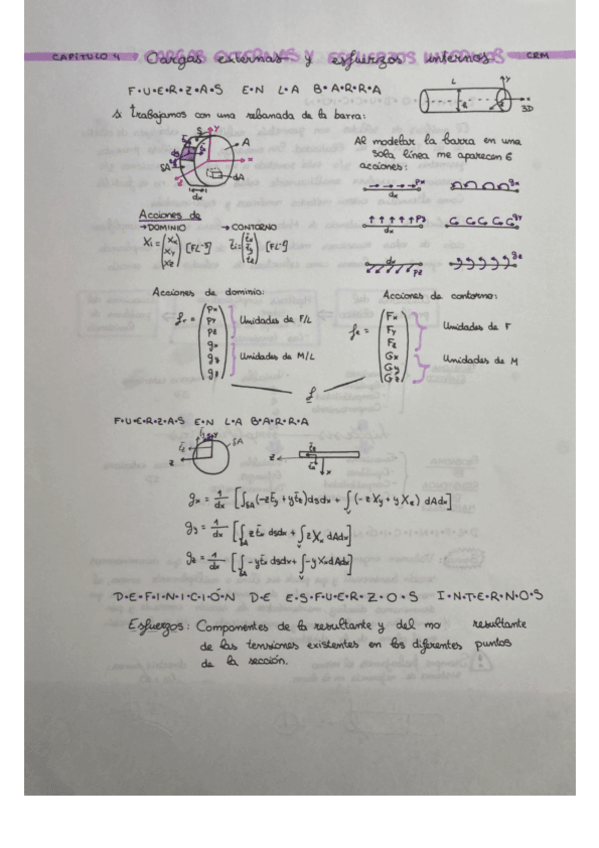 CAPÍTULO 4 Cargas externas y esfuerzos internos CRM
F·U·E·R·Z·A·S E·N L·A B·A·R·R·A
Si trabajamos con una rebanada de la barra:
L
y
3D
S y
A
δA
dA
dx
Al modelar la barra en una
sola línea me aparecen 6
acciones:
Px gx
dx
Py gy
dx
dx gz
Pz
Acciones de
→DOMINIO →CONTORNO
Xi = (Xx Xy Xz) [FL⁻³] t̄i = (t̄x t̄y t̄z) [FL⁻²]
Acciones de dominio: Acciones de contorno:
Px
Py Unidades de F/L
Pz
gx
gy Unidades de M/L
gz
Fx
Fy Unidades de F
Fz
Gx
Gy Unidades de M
Gz
f
F·U·E·R·Z·A·S E·N L·A B·A·R·R·A
δA
z
z
x
gx = 1/dx [∫δA (-z t̄y + y t̄z) dsdx + ∫v (-z Xy + y Xz) dAdx]
gy = 1/dx [∫δA z t̄x dsdx + ∫v z Xx dAdx]
gz = 1/dx [∫δA -y t̄x dsdx + ∫v -y Xx dAdx]
D·E·F·I·N·I·C·I·Ó·N D·E E·S·F·U·E·R·Z·O·S I·N·T·E·R·N·O·S
Esfuerzos: Componentes de la resultante y del mo resultante
de las tensiones existentes en los diferentes puntos
de la sección.